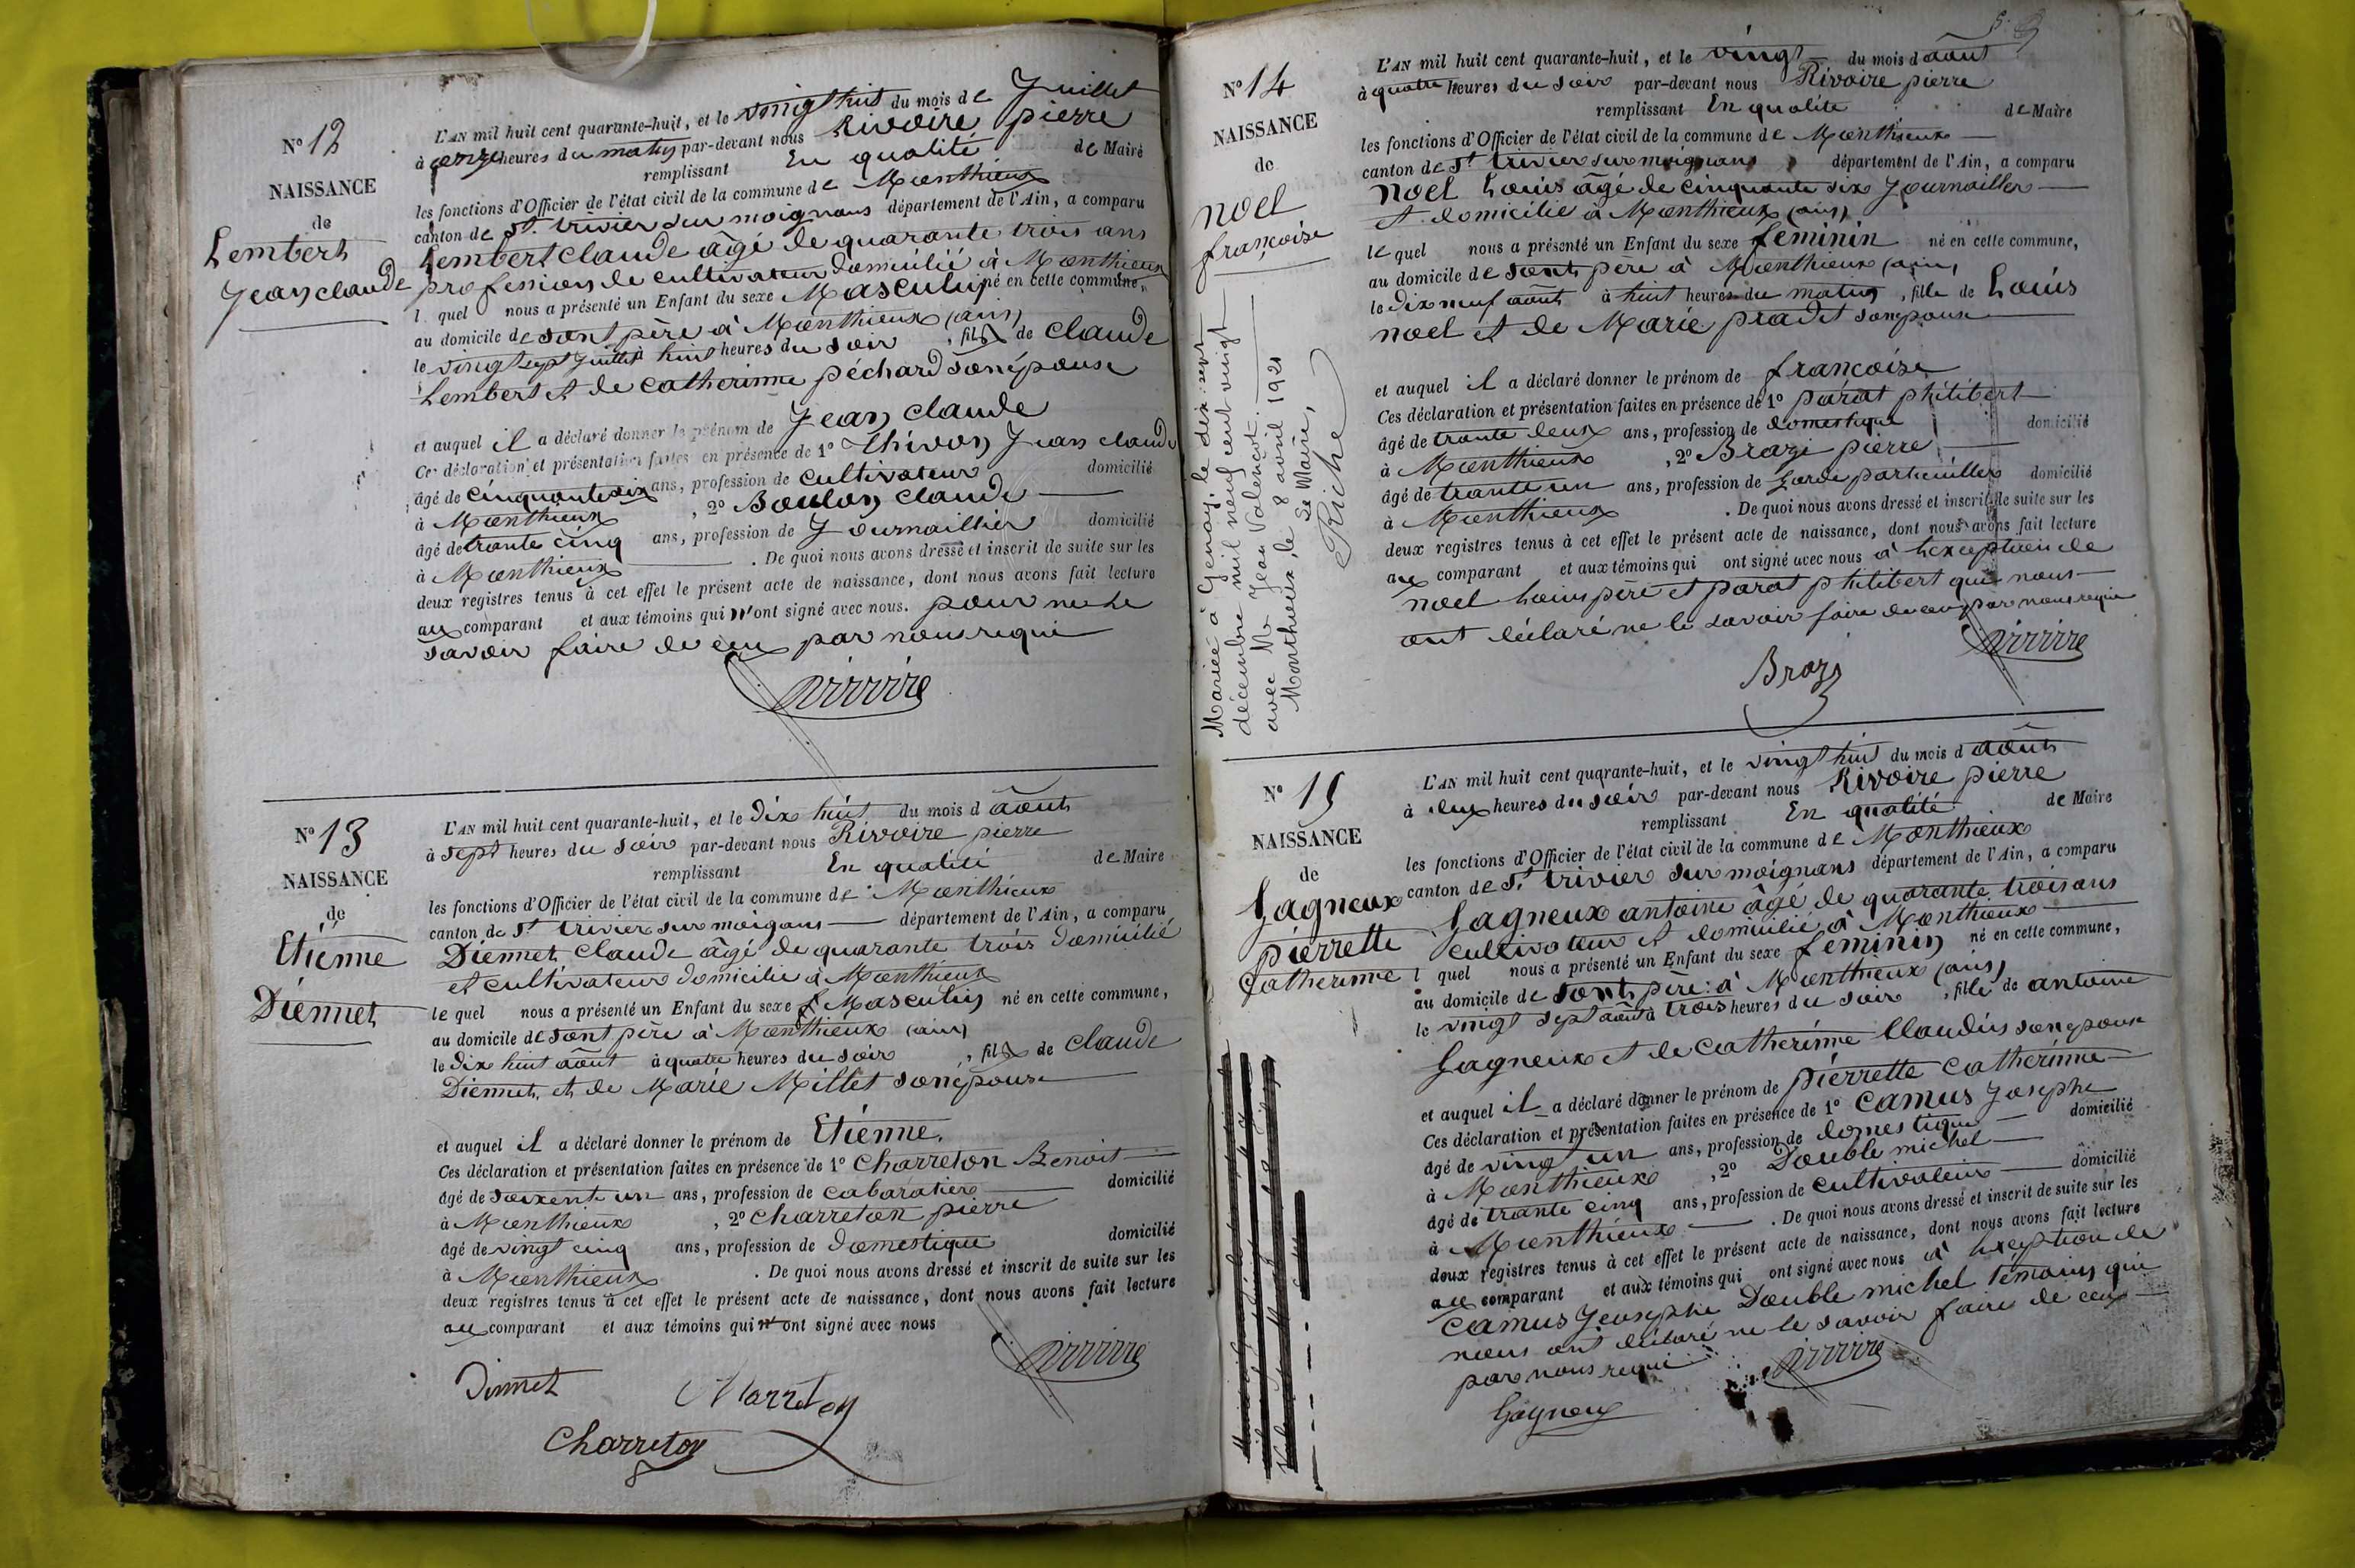 N° 12
NAISSANCE
de
Lembert
Jean claude
L'AN mil huit cent quarante-huit, et le vingt huit du mois de Juillet
à onze heures du matin par-devant nous Rivoire pierre
remplissant En qualité de Maire
les fonctions d'Officier de l'état civil de la commune de Monthieux
canton de St. trivier sur moignans département de l'Ain, a comparu
Lembert claude âgé de quarante trois ans
profession de cultivateur domicilié à Monthieux
l quel nous a présenté un Enfant du sexe Masculin né en cette commune,
au domicile de sont père à Monthieux (ain)
le vingt sept Juillet à huit heures du soir, fils de claude
Lembert et de catherinne péchard sonépouse
et auquel il a déclaré donner le prénom de Jean claude
Ces déclaration et présentation faites en présence de 1° Thivon Jean claude
âgé de cinquante six ans, profession de cultivateur domicilié
à Monthieux, 2° Boulon claude
âgé de trante cinq ans, profession de Journaillier domicilié
à Monthieux. De quoi nous avons dressé et inscrit de suite sur les
deux registres tenus à cet effet le présent acte de naissance, dont nous avons fait lecture
au comparant et aux témoins qui n'ont signé avec nous. pour ne le
savoir faire de ceux par nous requi
N° 13
NAISSANCE
de
Etienne
Diennet
L'AN mil huit cent quarante-huit, et le Dix huit du mois d août
à sept heures du soir par-devant nous Rivoire pierre
remplissant En qualité de Maire
les fonctions d'Officier de l'état civil de la commune de Monthieux
canton de St trivier sur moigans département de l'Ain, a comparu
Diennet claude âgé de quarante trois domicilié
et cultivateur domicilie à Monthieux
le quel nous a présenté un Enfant du sexe Masculin né en cette commune,
au domicile de sont père à Monthieux (ain)
le dix huit août à quatre heures du soir, fils de claude
Diennet, et de Marie Millet sonépouse
et auquel il a déclaré donner le prénom de Etienne.
Ces déclaration et présentation faites en présence de 1° Charreton Benoit
âgé de soixente un ans, profession de cabaratier domicilié
à Monthieux, 2° Charreton pierre
âgé de vingt cinq ans, profession de domestique domicilié
à Monthieux. De quoi nous avons dressé et inscrit de suite sur les
deux registres tenus à cet effet le présent acte de naissance, dont nous avons fait lecture
au comparant et aux témoins qui ont signé avec nous
Diennet
Charreton
N° 14
NAISSANCE
de
noel
françoise
Mariée à Genay, le dix-sept
décembre mil neuf cent vingt
avec Mr Jean Valençot.
Monthieux, le 8 avril 1921
Le Maire,
Riche
L'AN mil huit cent quarante-huit, et le vingt du mois d août
à quatre heures du soir par-devant nous Rivoire pierre
remplissant En qualité de Maire
les fonctions d'Officier de l'état civil de la commune de Monthieux
canton de St trivier sur moignans département de l'Ain, a comparu
noel Louis âgé de cinquante six Journaillier
et domicilié à Monthieux (ain)
le quel nous a présenté un Enfant du sexe féminin né en cette commune,
au domicile de sont père à Monthieux (ain)
le dix neuf août à huit heures du matin, fille de Louis
noel et de Marie pradet sonepouse
et auquel il a déclaré donner le prénom de françoise
Ces déclaration et présentation faites en présence de 1° parat philibert
âgé de trante deux ans, profession de domestique domicilié
à Monthieux, 2° Brazi pierre
âgé de trante un ans, profession de garde partieuillier domicilié
à Monthieux. De quoi nous avons dressé et inscrit de suite sur les
deux registres tenus à cet effet le présent acte de naissance, dont nous avons fait lecture
au comparant et aux témoins qui ont signé avec nous à lexception de
noel Louis père et parat philibert qui nous
ont déclaré ne le savoir faire de ceux par nous requi
N° 15
NAISSANCE
de
Gagneux
pierrette
Catherinne
L'AN mil huit cent quarante-huit, et le vingt huit du mois d août
à deux heures du soir par-devant nous Rivoire pierre
remplissant En qualité de Maire
les fonctions d'Officier de l'état civil de la commune de Monthieux
canton de St trivier sur moignans département de l'Ain, a comparu
Gagneux antoine âgé de quarante trois ans
cultivateur et domicilié à Monthieux
l quel nous a présenté un Enfant du sexe feminin né en cette commune,
au domicile de sont père à Monthieux (ain)
le vingt sept août à trois heures du soir, fille de antoine
Gagneux et de Catherinne Claudin sonepouse
et auquel il a déclaré donner le prénom de pierrette Catherinne
Ces déclaration et présentation faites en présence de 1° Camus Josephe
âgé de vingt un ans, profession de domestique domicilié
à Monthieux, 2° Double michel
âgé de trante cinq ans, profession de cultivateur domicilié
à Monthieux. De quoi nous avons dressé et inscrit de suite sur les
deux registres tenus à cet effet le présent acte de naissance, dont nous avons fait lecture
au comparant et aux témoins qui ont signé avec nous à lexception de
Camus Josephe Double michel témoins qui
nous ont déclaré ne le savoir faire de ceux
par nous requi
Gagneux